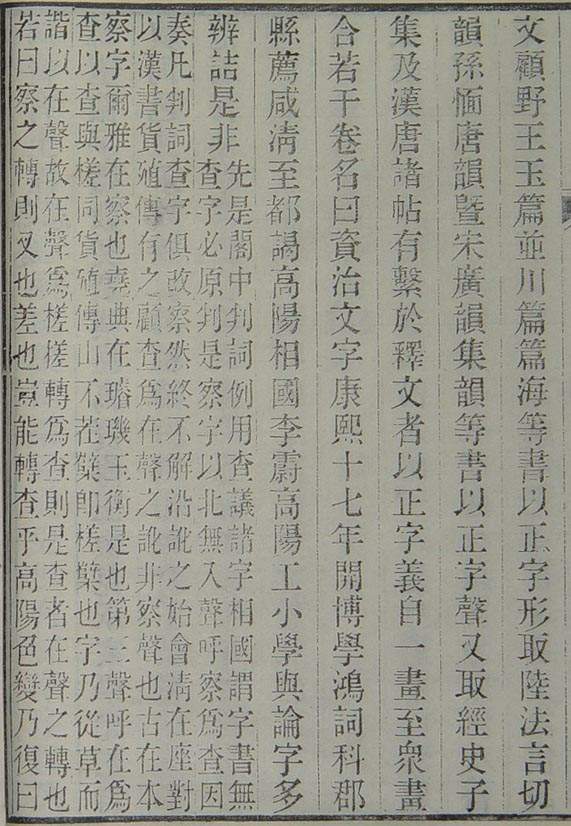 文顧野王玉篇並川篇篇海等書以正字形取陸法言切
韻孫愐唐韻暨宋廣韻集韻等書以正字聲又取經史子
集及漢唐諸帖有繫於釋文者以正字義自一畫至衆畫
合若干卷名曰資治文字康熙十七年開博學鴻詞科郡
縣薦咸淸至都謁高陽相國李霨高陽工小學與論字多
辨詰是非
先是閣中判詞例用查議諸字相國謂字書無
查字必原判是察字以北無入聲呼察爲查因
奏凡判詞查字俱改察然終不解沿訛之始會淸在座對
以漢書貨殖傳有之顧查爲在聲之訛非察聲也古在本
察字爾雅在察也堯典在璿璣玉衡是也第三聲呼在爲
查以查與槎同貨殖傳山不茬櫱卽槎櫱也字乃從草而
諧以在聲故在聲爲槎槎轉爲查則是查者在聲之轉也
若曰察之轉則叉也差也豈能轉查乎高陽色變乃復曰